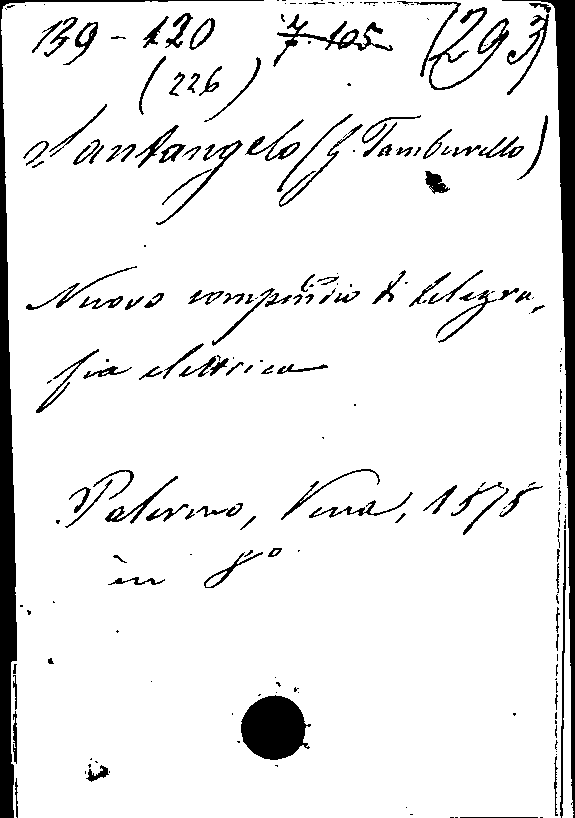 139-120 7.105 (293)
(226)
Santangelo (G. Tamburello)
Nuovo compendio di telegra,
fia elettrica
Palermo, Vena, 1878
in 8º